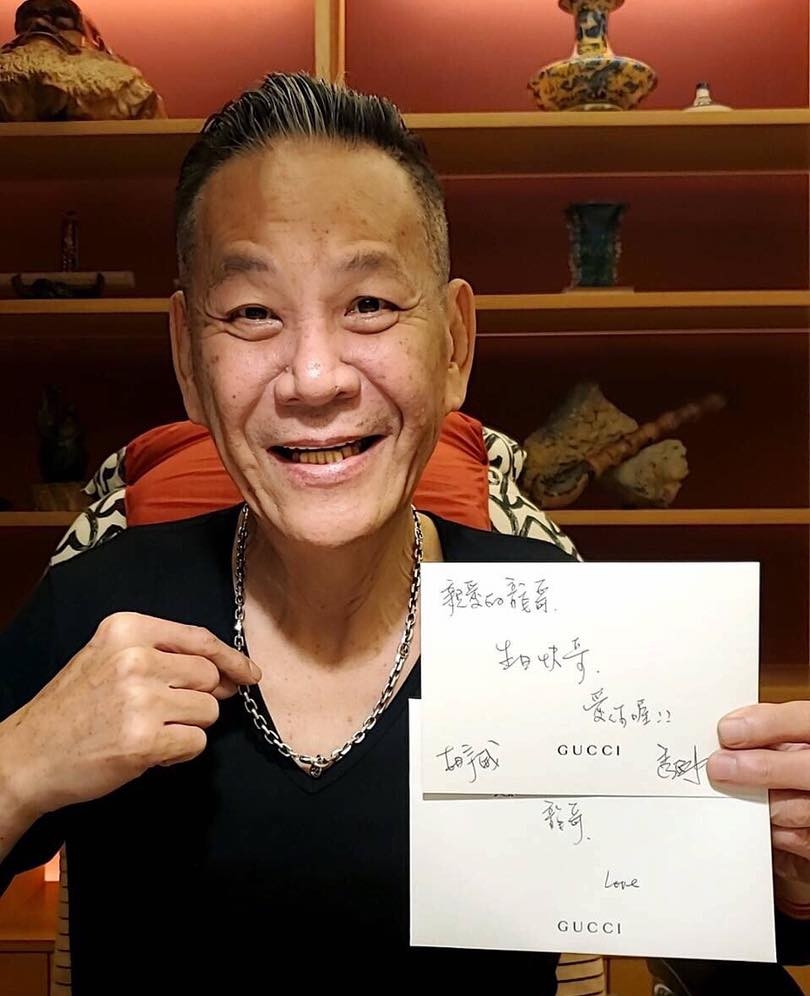 親愛的龍哥.
生日快哥.
愛你喔!!
GUCCI
龍哥.
Love
GUCCI